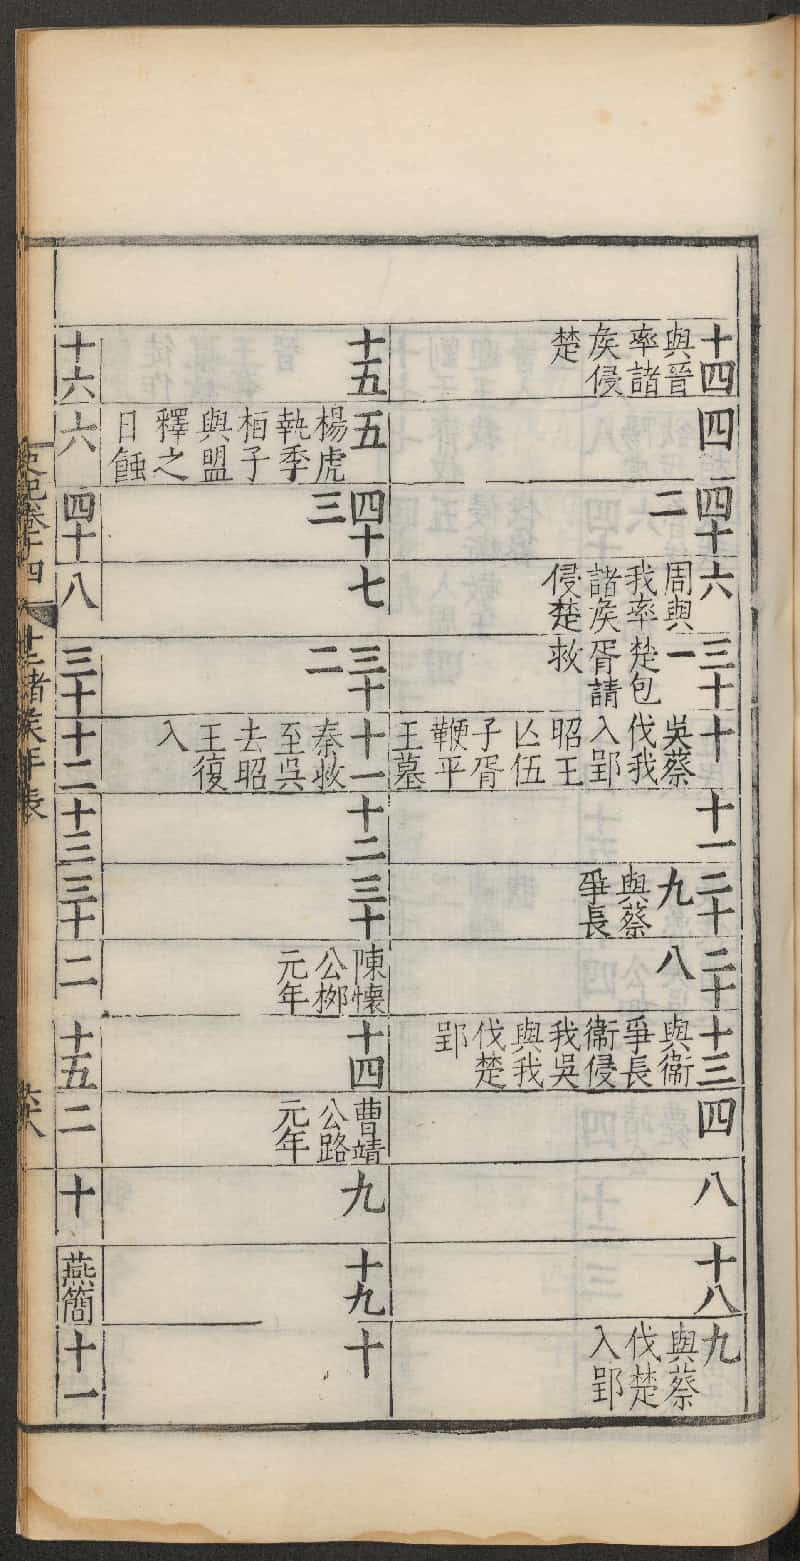 十四
與晉
率諸
矦侵
楚
四
四十
二
六
周與
我率
諸矦
侵楚
三十
一
楚包
胥請
救
十
吳蔡
伐我
入郢
昭王
亾伍
子胥
鞭平
王墓
十一
二十
九
與蔡
爭長
二十
八
十三
與衞
爭長
衞侵
我吳
與我
伐楚
郢
四
八
十八
九
與蔡
伐楚
入郢
十五
五
楊虎
執季
桓子
與盟
釋之
日蝕
四十
三
七
三十
二
十一
秦救
至吳
去昭
王復
入
十二
三十
陳懷
公栁
元年
十四
曹靖
公路
元年
九
十九
十
十六
六
四十
八
三十
十二
十三
三十
二
十五
二
十
燕簡
十一
史記卷十四
十二諸矦年表